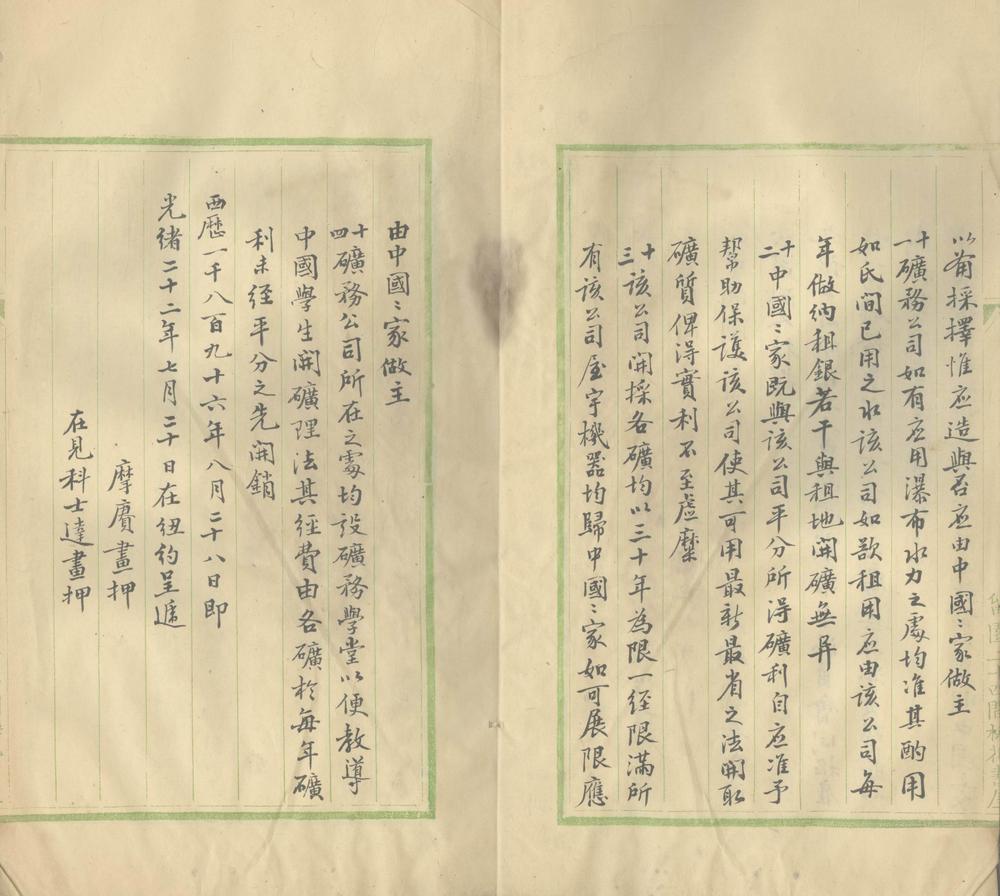 以備採擇惟应造與否应由中國〻家做主
十一礦務公司如有应用瀑布水力之處均准其酌用
如民間已用之水該公司如欲租用应由該公司每
年做納租銀若干與租地開礦無异
十二中國〻家既與該公司平分所得礦利自应准予
幫助保護該公司使其可用最新最省之法開取
礦質俾得實利不至虛糜
十三該公司開採各礦均以三十年為限一經限滿所
有該公司屋宇機器均歸中國〻家如可展限應
由中國〻家做主
十四礦務公司所在之處均設礦務學堂以便教導
中國學生開礦理法其經費由各礦於每年礦
利未經平分之先開銷
西歷一千八百九十六年八月二十八日即
光緒二十二年七月二十日在紐約呈遞
摩賡畫押
在見科士達畫押